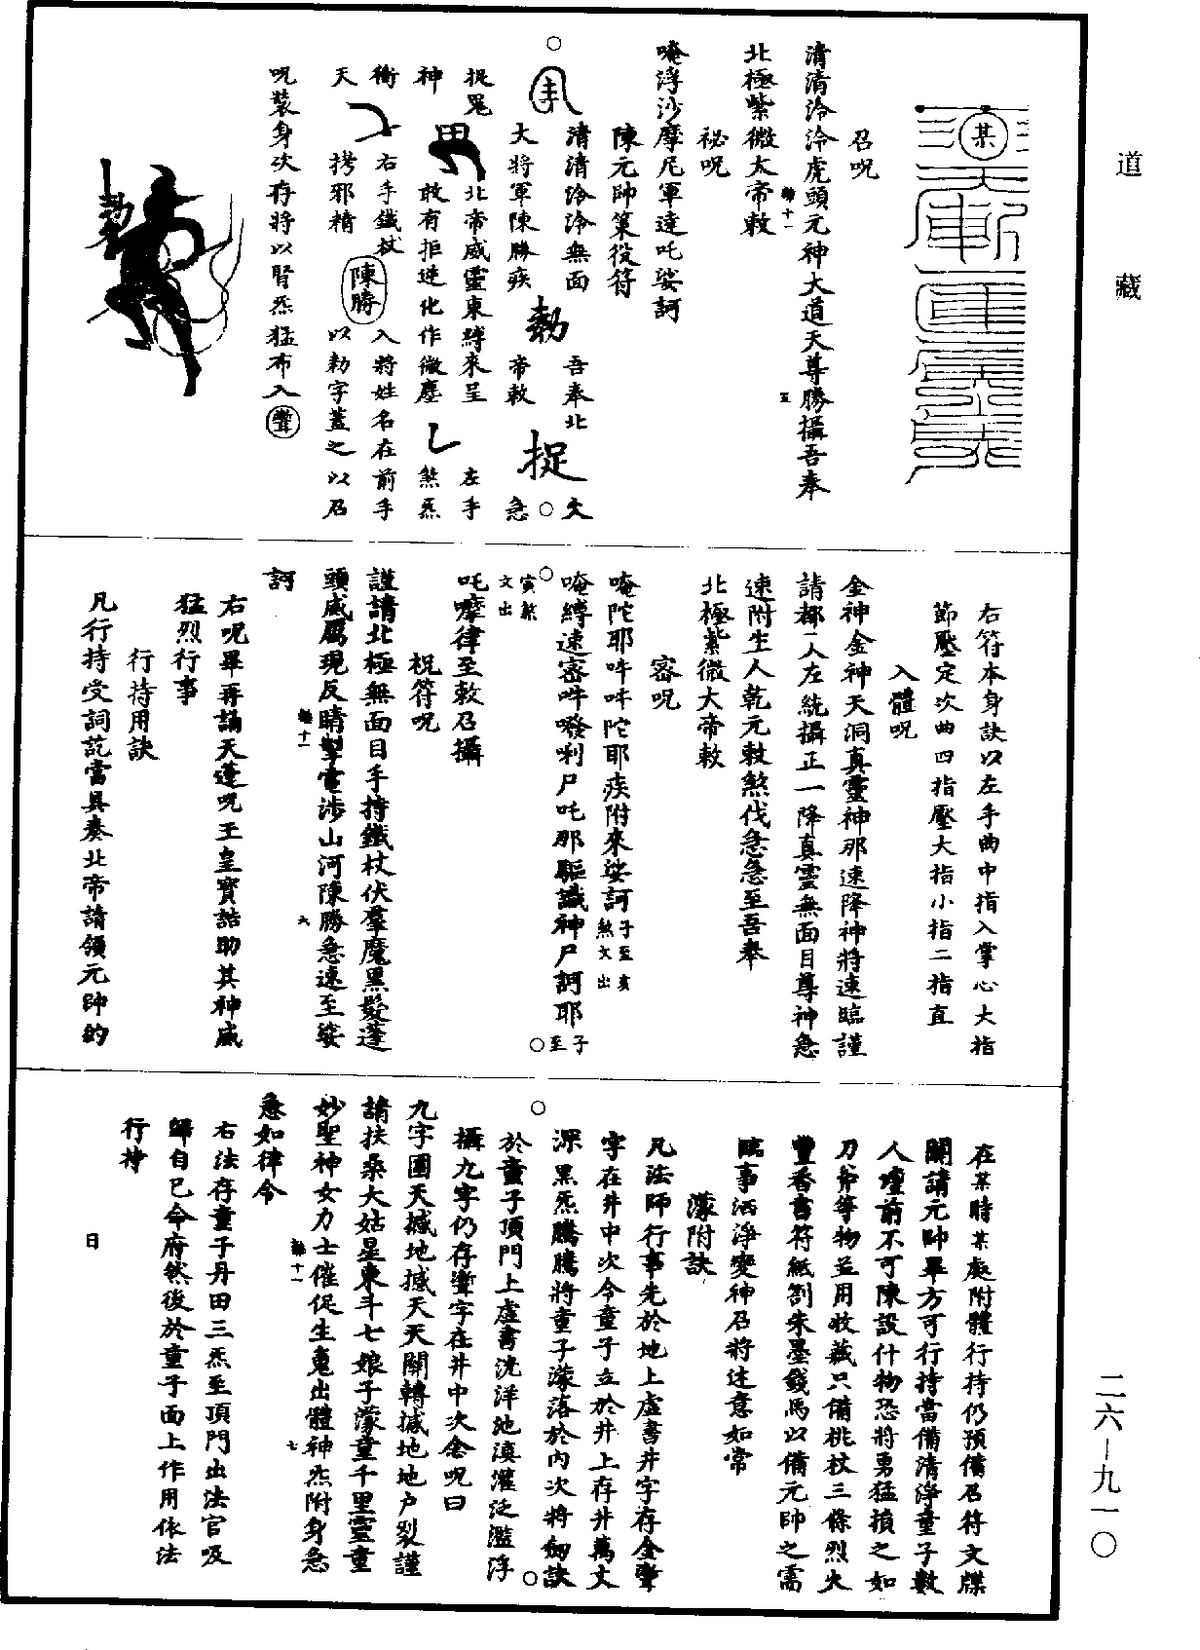 道藏
二六—九一〇
某
召呪
清清泠泠虎頭元神大道天尊勝攝吾奉
北極紫微大帝敕
祕呪
唵浮沙摩尼軍達吒娑訶
陳元帥策役符
清清泠泠無面
大將軍陳勝疾
勑
吾奉北
帝敕
捉
火
急
捉鬼
神
北帝威靈東縛來呈
敢有拒逆化作微塵
左手
煞炁
衡
天
右手鐵杖
拷邪精
陳勝
入將姓名在前手
以勑字蓋之以召
呪裝身次存將以腎炁猛布入
勑
右符本身訣以左手曲中指入掌心大指
節壓定次曲四指壓大指小指二指直
入體呪
金神金神天洞真靈神那速降神將速臨謹
請都一人左統攝正一降真靈無面目尊神急
速附生人乾元敕煞伐急急至吾奉
北極紫微大帝敕
密呪
唵陀耶吽吽陀耶疾附來娑訶子至亥煞文出
唵縛速密吽癹唎尸吒那驅讖神尸訶耶子至
寅煞文出
吒嚤律至敕召攝
祝符呪
謹請北極無面目手持鐵杖伏羣魔黑髮蓬
頭威厲現反睛掣電涉山河陳勝急速至娑
訶
右呪畢再誦天蓬呪玉皇寶誥助其神威
猛烈行事
行持用訣
凡行持受詞訖當具奏北帝請領元帥的
在某時某處附體行持仍預備召符文牒
關請元帥畢方可行持當備清淨童子數
人壇前不可陳設什物恐將勇猛損之如
刀斧等物並用收藏只備桃杖三條烈火
豐香書符紙劄朱墨錢馬以備元帥之需
臨事洒淨變神召將述意如常
濛附訣
凡法師行事先於地上虛書井字存金
字在井中次令童子立於井上存井萬丈
深黑炁騰騰將童子濛落於內次將劒訣
於童子頂門上虛書洸洋池溟灌泛濫浮
攝九字仍存字在井中次念呪曰
九字圍天撼地撼天天關轉撼地地戶裂謹
請扶桑大姑星東斗七娘子濛童千里靈童
妙聖神女力士催促生魂出體神炁附身急
急如律令
右法存童子丹田三炁至頂門出法官吸
歸自己命府然後於童子面上作用依法
行持
日